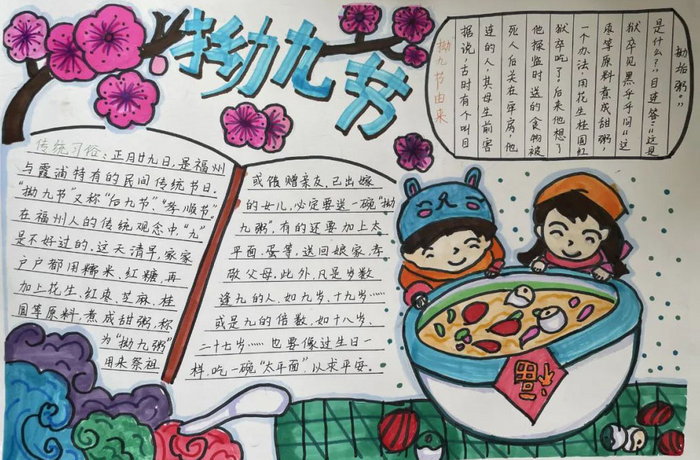 拗九节
传统习俗：正月廿九日，是福州
与霞浦特有的民间传统节日。
"拗九节"又称"后九节""孝顺节"
在福州人的传统观念中，"九"
是不好过的。这天清早，家家
户户都用糯米、红糖，再
加上花生、红枣、芝麻、桂
圆等原料，煮成甜粥，称
为"拗九粥"
用来祭祖
或馈赠亲友，已出嫁
的女儿，必定要送一碗"拗
九粥"，有的还要加上太
平面、蛋等，送回娘家，孝
敬父母，此外，凡是岁数
逢九的人，如九岁、十九岁……
或是九的倍数，如十八岁、
二十七岁……也要像过生日一
样，吃一碗"太平面"，以求平安。
拗九节由来
据说，古时有个叫目
连的人，其母生前害
死人后关在牢房，他
他探监时送的食物被
狱卒吃了，后来他想了
一个办法，用花生桂圆红
枣等原料煮成甜粥，
狱卒见黑乎乎问："这
是什么？"，目连答："这是
拗垢粥。"
福